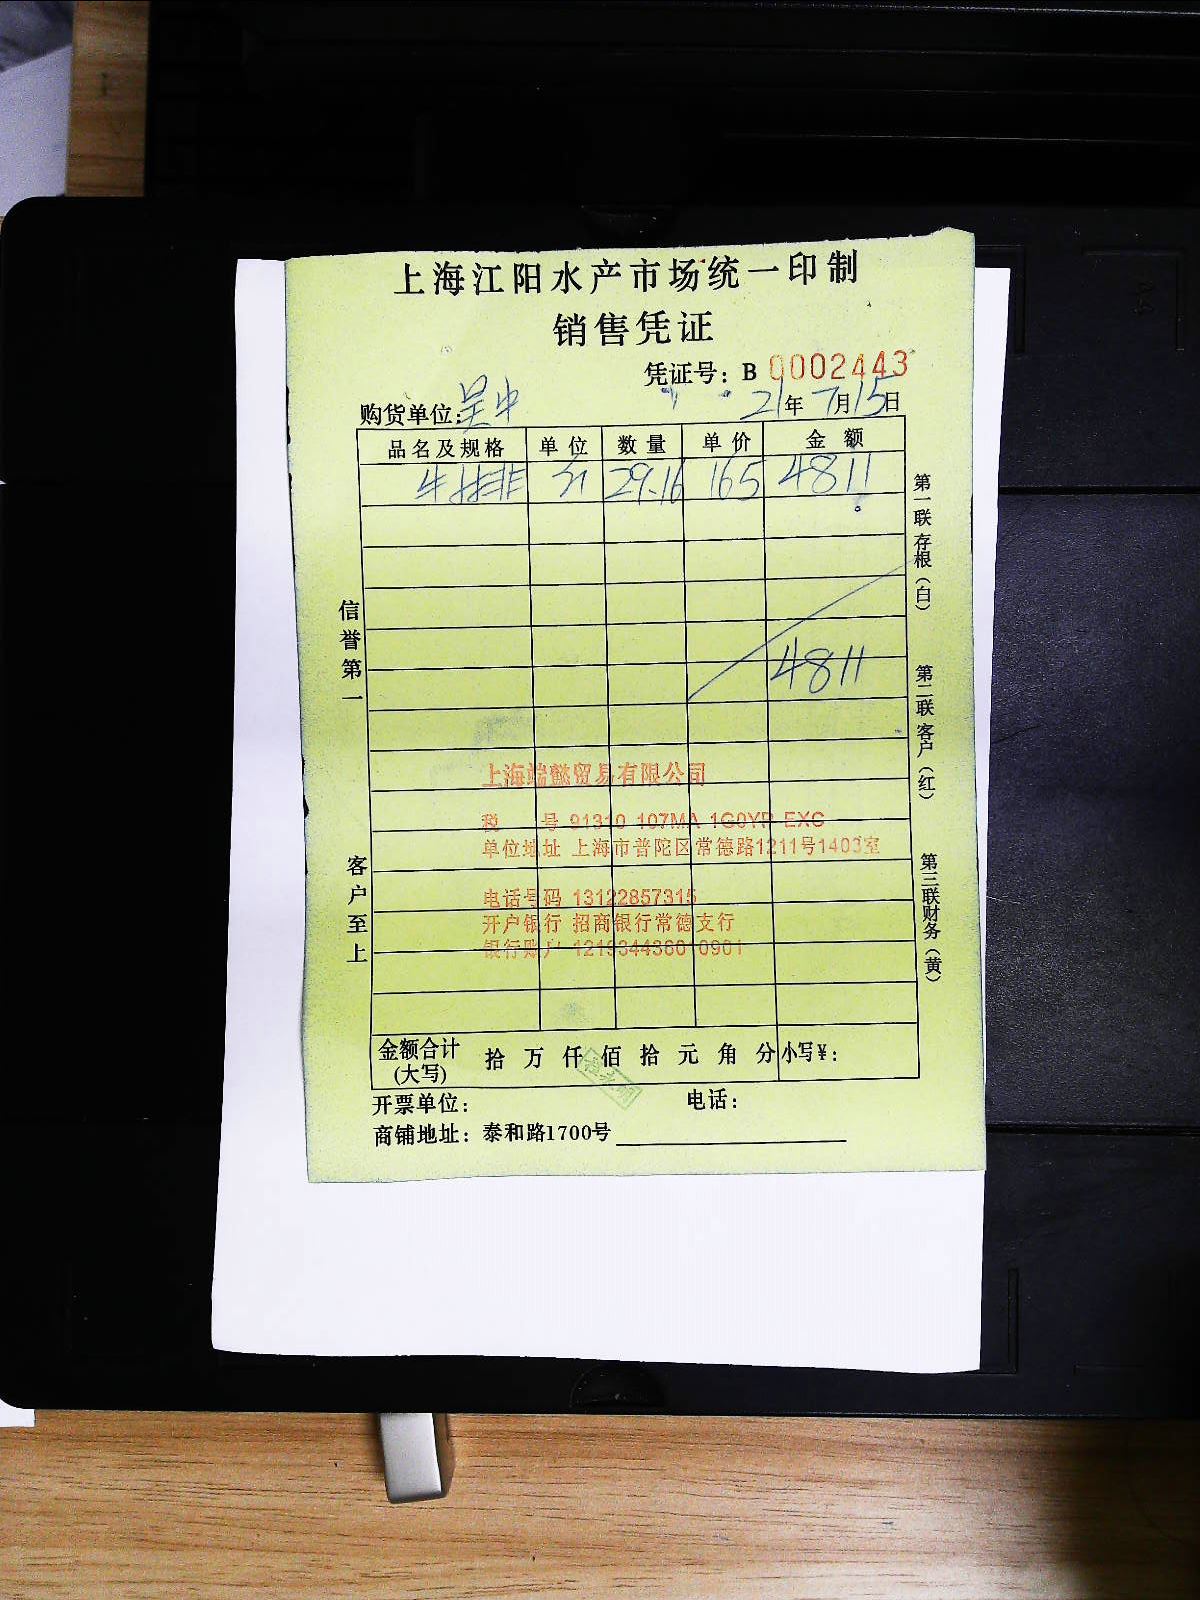 上海江阳水产市场统一印制
销售凭证
凭证号：B 0002443
购货单位：吴中 21年7月15日
品名及规格 单位 数量 单价 金额
牛排 29.16 165 4811
4811
信誉第一
客户至上
第一联 存根（白）
第二联 客户（红）
第三联 财务（黄）
上海端懿贸易有限公司
税 号 91310 107MA 1G0YP EXC
单位地址 上海市普陀区常德路1211号1403室
电话号码 13122857315
开户银行 招商银行常德支行
银行账户
金额合计(大写) 拾 万 仟 佰 拾 元 角 分 小写¥：
开票单位： 电话：
商铺地址：泰和路1700号